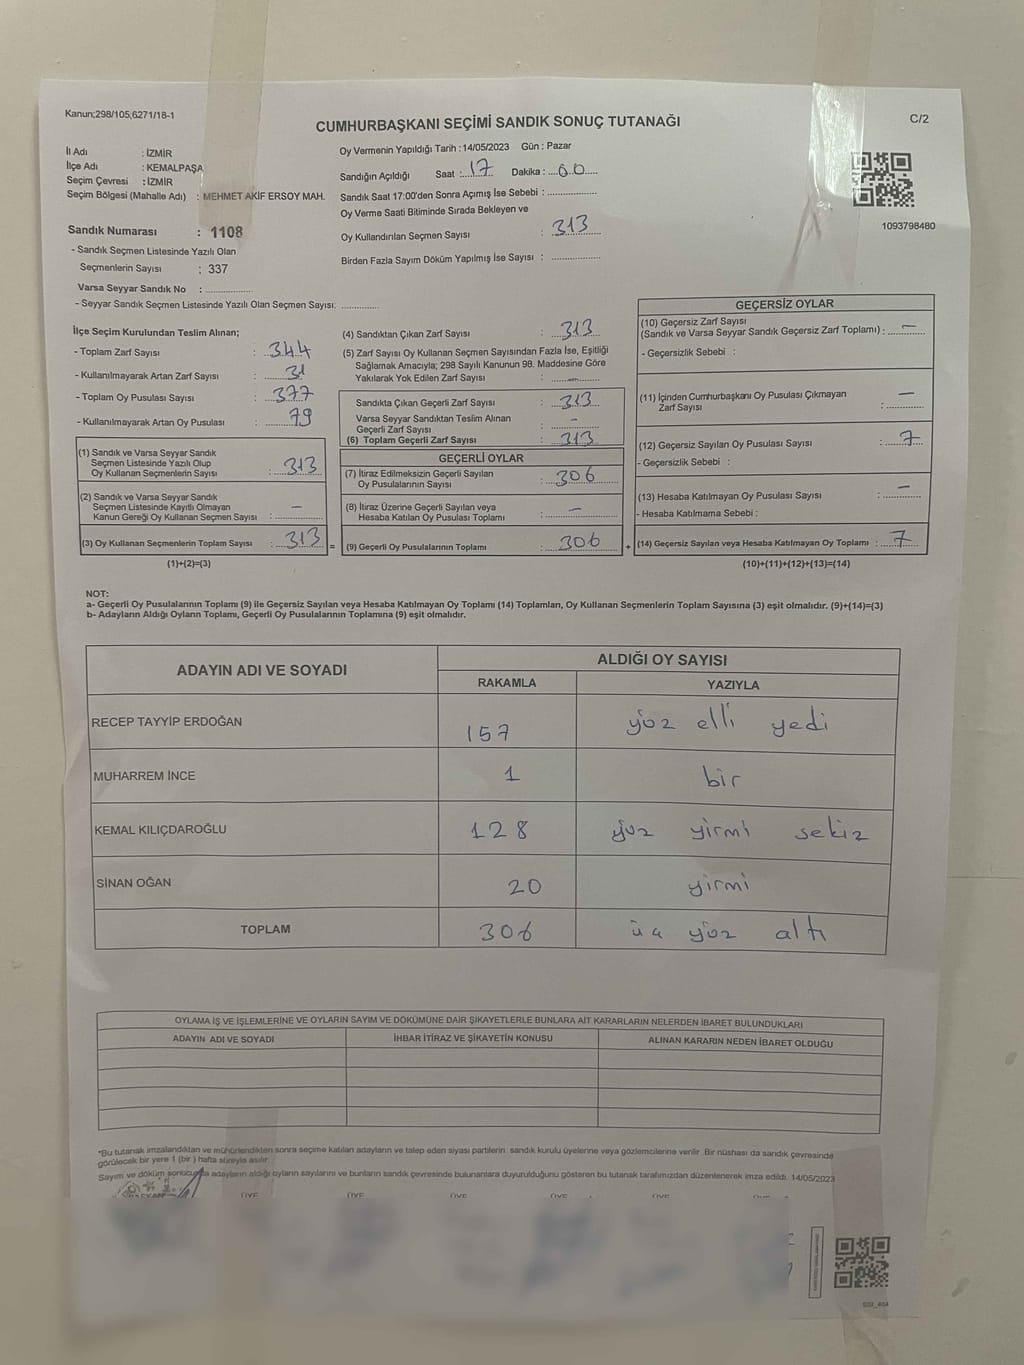 Kanun;298/105;6271/18-1
CUMHURBAŞKANI SEÇİMİ SANDIK SONUÇ TUTANAĞI
C/2
İl Adı : İZMİR
İlçe Adı : KEMALPAŞA
Seçim Çevresi : İZMİR
Seçim Bölgesi (Mahalle Adı) : MEHMET AKİF ERSOY MAH.
Sandık Numarası : 1108
- Sandık Seçmen Listesinde Yazılı Olan
Seçmenlerin Sayısı : 337
Varsa Seyyar Sandık No : ..............
- Seyyar Sandık Seçmen Listesinde Yazılı Olan Seçmen Sayısı: ............
Oy Vermenin Yapıldığı Tarih : 14/05/2023 Gün : Pazar
Sandığın Açıldığı Saat : 17 Dakika : 00
Sandık Saat 17:00'den Sonra Açımış İse Sebebi : ..............
Oy Verme Saati Bitiminde Sırada Bekleyen ve
Oy Kullandırılan Seçmen Sayısı : 313
Birden Fazla Sayım Döküm Yapılmış İse Sayısı : ..............
1093798480
İlçe Seçim Kurulundan Teslim Alınan;
- Toplam Zarf Sayısı : 344
- Kullanılmayarak Artan Zarf Sayısı : 31
- Toplam Oy Pusulası Sayısı : 377
- Kullanılmayarak Artan Oy Pusulası : 79
(1) Sandık ve Varsa Seyyar Sandık
Seçmen Listesinde Yazılı Olup
Oy Kullanan Seçmenlerin Sayısı : 313
(2) Sandık ve Varsa Seyyar Sandık
Seçmen Listesinde Kayıtlı Olmayan
Kanun Gereği Oy Kullanan Seçmen Sayısı : —
(3) Oy Kullanan Seçmenlerin Toplam Sayısı : 313 =
(1)+(2)=(3)
(4) Sandıktan Çıkan Zarf Sayısı : 313
(5) Zarf Sayısı Oy Kullanan Seçmen Sayısından Fazla İse, Eşitliği
Sağlamak Amacıyla; 298 Sayılı Kanunun 98. Maddesine Göre
Yakılarak Yok Edilen Zarf Sayısı : —
Sandıkta Çıkan Geçerli Zarf Sayısı : 313
Varsa Seyyar Sandıktan Teslim Alınan
Geçerli Zarf Sayısı : —
(6) Toplam Geçerli Zarf Sayısı : 313
GEÇERLİ OYLAR
(7) İtiraz Edilmeksizin Geçerli Sayılan
Oy Pusulalarının Sayısı : 306
(8) İtiraz Üzerine Geçerli Sayılan veya
Hesaba Katılan Oy Pusulası Toplamı : —
(9) Geçerli Oy Pusulalarının Toplamı : 306 +
GEÇERSİZ OYLAR
(10) Geçersiz Zarf Sayısı
(Sandık ve Varsa Seyyar Sandık Geçersiz Zarf Toplamı) : —
- Geçersizlik Sebebi :
(11) İçinden Cumhurbaşkanı Oy Pusulası Çıkmayan
Zarf Sayısı : —
(12) Geçersiz Sayılan Oy Pusulası Sayısı : 7
- Geçersizlik Sebebi :
(13) Hesaba Katılmayan Oy Pusulası Sayısı : —
- Hesaba Katılmama Sebebi :
(14) Geçersiz Sayılan veya Hesaba Katılmayan Oy Toplamı : 7
(10)+(11)+(12)+(13)=(14)
NOT:
a- Geçerli Oy Pusulalarının Toplamı (9) ile Geçersiz Sayılan veya Hesaba Katılmayan Oy Toplamı (14) Toplamları, Oy Kullanan Seçmenlerin Toplam Sayısına (3) eşit olmalıdır. (9)+(14)=(3)
b- Adayların Aldığı Oyların Toplamı, Geçerli Oy Pusulalarının Toplamına (9) eşit olmalıdır.
ADAYIN ADI VE SOYADI ALDIĞI OY SAYISI
RAKAMLA YAZIYLA
RECEP TAYYİP ERDOĞAN 157 yüz elli yedi
MUHARREM İNCE 1 bir
KEMAL KILIÇDAROĞLU 128 yüz yirmi sekiz
SİNAN OĞAN 20 yirmi
TOPLAM 306 üç yüz altı
OYLAMA İŞ VE İŞLEMLERİNE VE OYLARIN SAYIM VE DÖKÜMÜNE DAİR ŞİKAYETLERLE BUNLARA AİT KARARLARIN NELERDEN İBARET BULUNDUKLARI
ADAYIN ADI VE SOYADI İHBAR İTİRAZ VE ŞİKAYETİN KONUSU ALINAN KARARIN NEDEN İBARET OLDUĞU
*Bu tutanak imzalandıktan ve mühürlendikten sonra seçime katılan adayların ve talep eden siyasi partilerin sandık kurulu üyelerine veya gözlemcilerine verilir. Bir nüshası da sandık çevresinde
görülecek bir yere 1 (bir) hafta süreyla asılır.
Sayım ve döküm sonucunda adayların aldığı oyların sayılarını ve bunların sandık çevresinde bulunanlara duyurulduğunu gösteren bu tutanak tarafımızdan düzenlenerek imza edildi. 14/05/2023
ÜYE ÜYE ÜYE ÜYE ÜYE